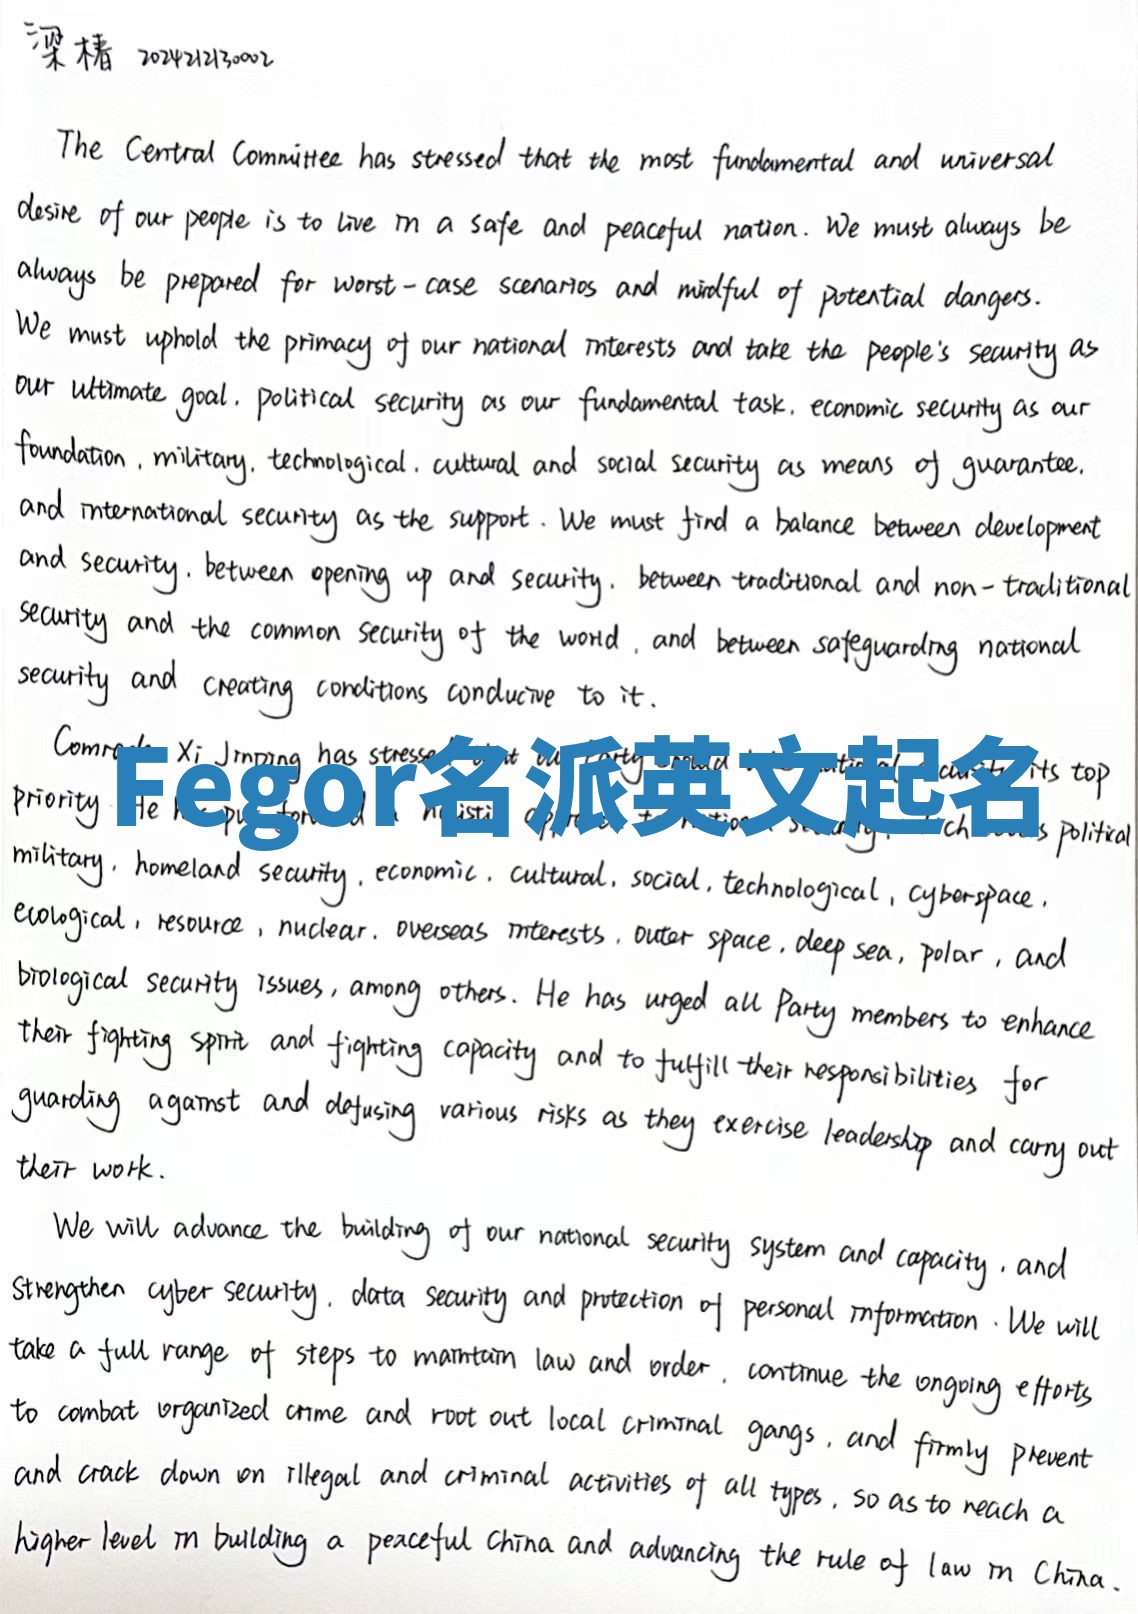 梁椿 2024212130002
The Central Committee has stressed that the most fundamental and universal
desire of our people is to live in a safe and peaceful nation. We must always be
always be prepared for worst-case scenarios and mindful of potential dangers.
We must uphold the primacy of our national interests and take the people's security as
our ultimate goal, political security as our fundamental task, economic security as our
foundation, military, technological, cultural and social security as means of guarantee,
and international security as the support. We must find a balance between development
and security, between opening up and security, between traditional and non-traditional
security and the common security of the world, and between safeguarding national
security and creating conditions conducive to it.
Xi Jinping has its top
Fegor名派英文起名
priority He political
military, homeland security, economic, cultural, social, technological, cyberspace,
ecological, resource, nuclear, overseas interests, outer space, deep sea, polar, and
biological security issues, among others. He has urged all Party members to enhance
their fighting spirit and fighting capacity and to fulfill their responsibilities for
guarding against and defusing various risks as they exercise leadership and carry out
their work.
We will advance the building of our national security system and capacity, and
strengthen cyber security, data security and protection of personal information. We will
take a full range of steps to maintain law and order, continue the ongoing efforts
to combat organized crime and root out local criminal gangs, and firmly prevent
and crack down on illegal and criminal activities of all types, so as to reach a
higher level in building a peaceful China and advancing the rule of law in China.